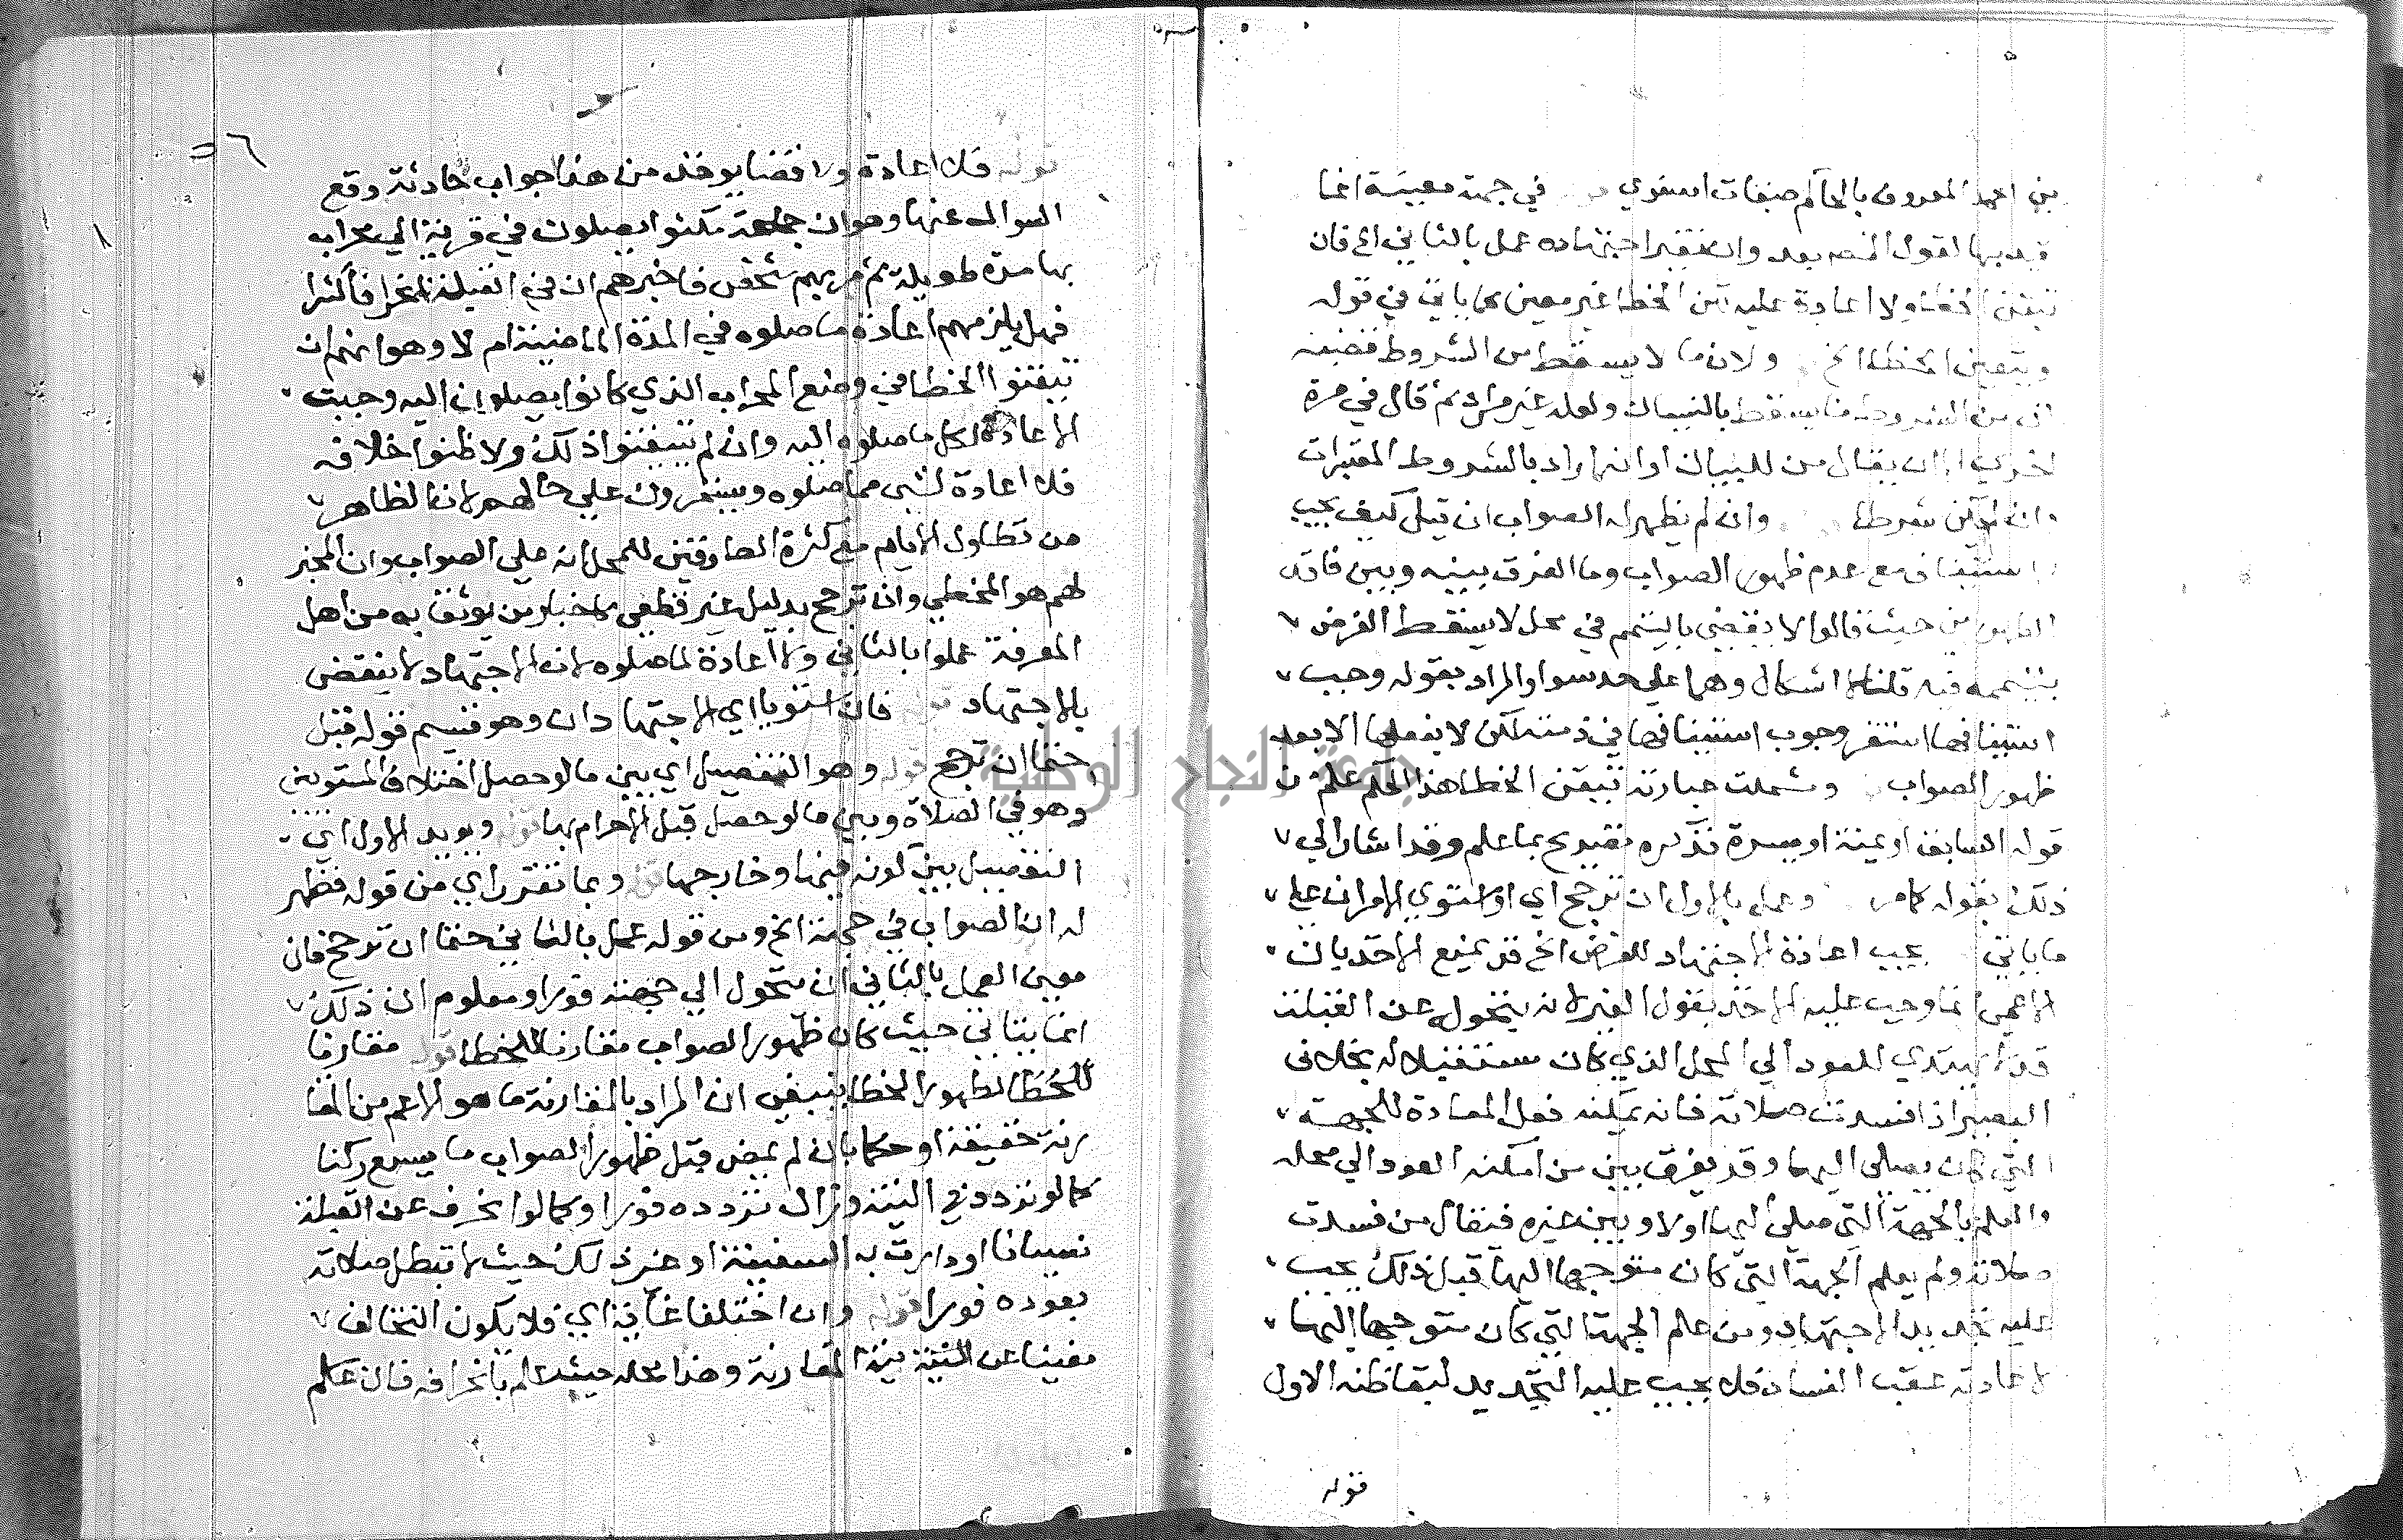 بن احمد المعروف بالحاكم صنفات اسنوي في جهة معينة انما
قيد بها لقول المص بعد وان تغير اجتهاده عمل بالثاني اي فان
تيقن الخطا ولا اعادة عليه لان الخطا غير معين كما ياتي في قوله
ويتعين الخطا الخ ولان ما لا يسقط من الشروط قضيته
ان من الشروط ما يسقط بالنسيان ولعله غير مراد ثم قال في مرة
اخري الا ان يقال من للبيان او انه اراد بالشروط المعتبرات
وان لم يكن شرطا وان لم يظهر له الصواب ان قيل كيف يجب
استينافه مع عدم ظهور الصواب وما الفرق بينه وبين فاقد
الطهورين حيث قالوا لا يقضي بالتيمم في محل لا يسقط الفرض
بتيممه فيه قلنا لا اشكال وهما علي حد سوا والمراد بقوله وجب
استينافها استقر وجوب استينافها في ذمته لكن لا يفعلها الا بعد
ظهور الصواب وشملت عبارته تيقن الخطا هذا الحكم علم من
قوله السابق او يمنة او يسرة فذكره تصريح بما علم وقد اشار الي
ذلك بقوله كما مر وعمل بالاول ان ترجح اي او استوي الامران علي
ما ياتي يجب اعادة الاجتهاد للفرض الخ قد يمنع الاخذ بان
الاعمي انما وجب عليه الاخذ بقول الغير لانه يتحول عن القبلة
قد لا يهتدي للعود الي المحل الذي كان مستقبلا له بخلاف
البصير اذا فسدت صلاته فانه يمكنه فعل المعادة للجهة
التي كان يصلي اليها وقد يفرق بين من امكنه العود الي محله
والعلم بالجهة التي صلي اليها اولا وبين غيره فيقال من فسدت
صلاته ولم يعلم الجهة التي كان متوجها اليها قبل ذلك يجب
عليه تجديد الاجتهاد ومن علم الجهة التي كان متوجها اليها
لاعادته عقب الفساد فلا يجب عليه التجديد لبقا ظنه الاول
قوله
قوله فلا اعادة ولا قضا يوخذ من هذا جواب حادثة وقع
السوال عنها وهو ان جماعة مكثوا يصلون في قرية الي محراب
بها مدة طويلة ثم مر بهم شخص فاخبرهم ان في القبلة انحرافا كثيرا
فهل يلزمهم اعادة ما صلوه في المدة الماضية ام لا وهو انهم ان
تيقنوا الخطا في وضع المحراب الذي كانوا يصلون اليه وجبت
الاعادة لكل ما صلوه اليه وان لم يتيقنوا ذلك ولا ظنوا خلافه
فلا اعادة لشي مما صلوه ويستمرون علي حالهم لان الظاهر
من تطاول الايام مع كثرة الطارقين للمحل انه علي الصواب وان المخبر
لهم هو المخطي وان ترجح بدليل غير قطعي كاخبار من يوثق به من اهل
المعرفة عملوا بالثاني ولا اعادة لما صلوه لان الاجتهاد لا ينقض
بالاجتهاد قوله فان استويا اي الاجتهادان وهو قسيم قوله قبل
حتما ان ترجح قوله وهو التفصيل اي بين ما لو حصل اختلاف المستويين
وهو في الصلاة وبين ما لو حصل قبل الاحرام بها قوله ويويد الاول اي
التفصيل بين كونه فيها وخارجها قوله وبما تقرر اي من قوله فظهر
له ان الصواب في جهة الخ ومن قوله عمل بالثاني حتما ان ترجح فان
معني العمل بالثاني ان يتحول الي جهته فورا ومعلوم ان ذلك
انما يتاتي حيث كان ظهور الصواب مقارنا للخطا قوله مقارنا
للخطا لظهور الخطا ينبغي ان المراد بالمقارنة ما هو الاعم من المقا
رنة حقيقة او حكما بان لم يمض قبل ظهور الصواب ما يسع ركنا
كما لو تردد في النية وزال تردده فورا وكما لو انحرف عن القبلة
نسيانا او دارت به السفينة او غير ذلك حيث لا تبطل صلاته
بعوده فورا قوله وان اختلفا عافية اي فلا يكون التخالف
مغنيا عن النية نية المقارنة وهذا محله حيث علم بانحرافه فان علم